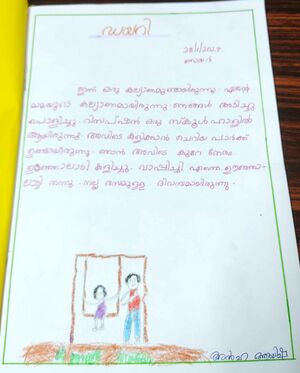 ഡയറി
28/1/2024
ഞായർ
ഇന്ന് ഒരു കല്യാണമുണ്ടായിരുന്നു. എൻ്റെ
മാമയുടെ കല്യാണമായിരുന്നു. ഞങ്ങൾ അടിച്ചു
പൊളിച്ചു. റിസപ്ഷൻ ഒരു സ്കൂൾ ഹാളിൽ
ആയിരുന്നു. അവിടെ കളിക്കാൻ ചെറിയ പാർക്ക്
ഉണ്ടായിരുന്നു. ഞാൻ അവിടെ കുറേ നേരം
ഊഞ്ഞാലാടി കളിച്ചു. വാപ്പിച്ചി എന്നെ ഊഞ്ഞാ
ലാട്ടി തന്നു. നല്ല രസമുള്ള ദിവസമായിരുന്നു.